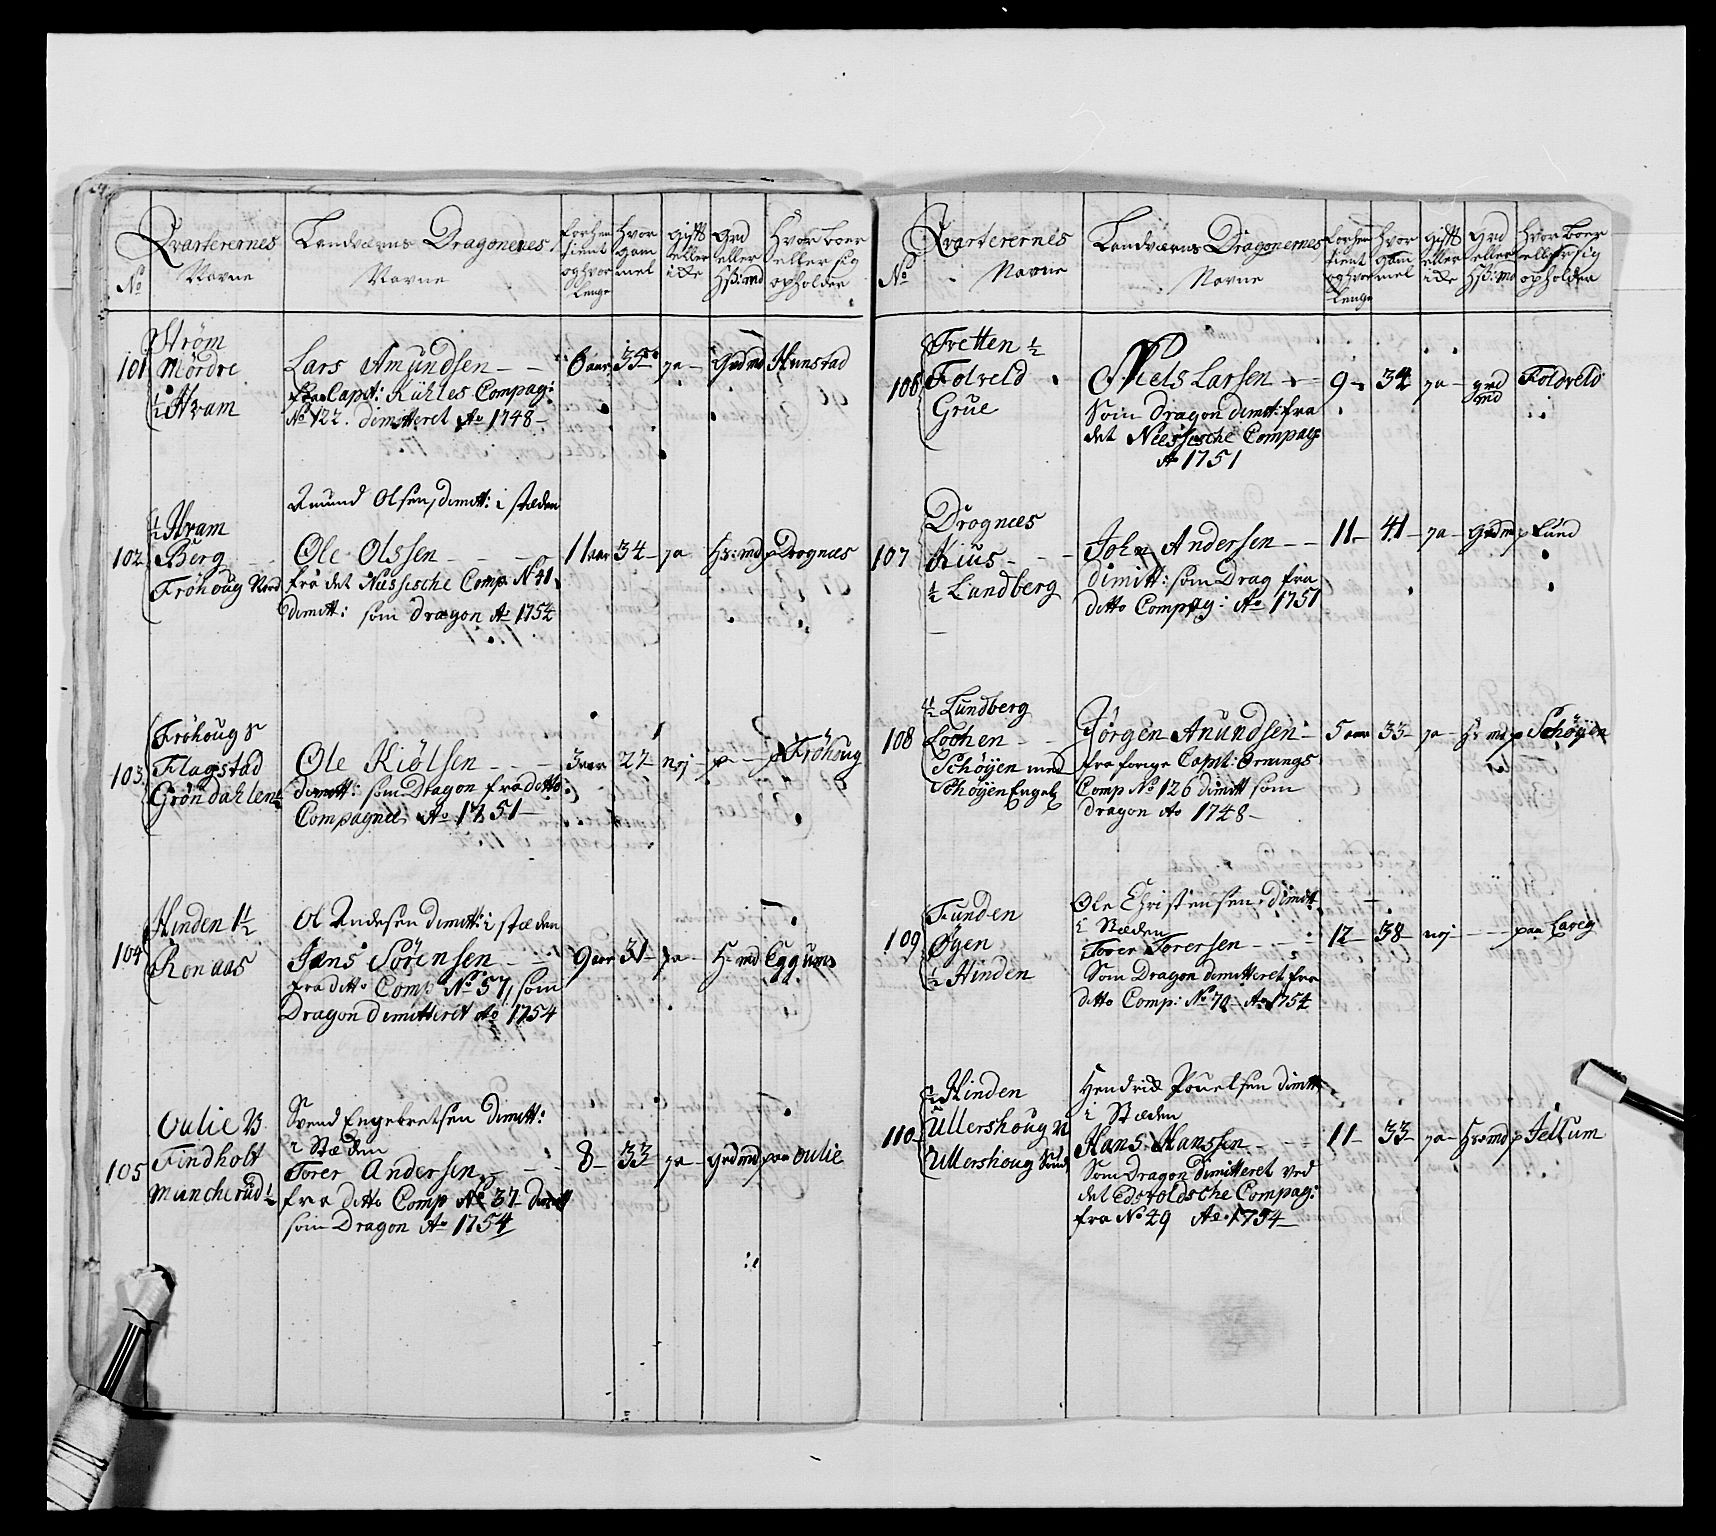 No
Qvarterernes
Navne
Landværns Dragonernes
Navne
forhen
tient
og hvor
Lenge
Hvor
gam
mel
gift
eller
ikke
Grd
eller
Hß:md
Hvor boer
eller sig
opholder
101
Strøm
Mördre
1/2 Hvam
Lars Amundsen
fra Capit: Kühles Compag:
No 122. dimitteret Ao 1748
6 aar
35
ja
Grdmd
Hunstad
102
1/2 Hvam
Berg
Fröhoug Nord
Amund Olsen, dimitt: i stæden
Ole Olssen
fra det Neessische Comp No 41
dimitt: som dragon Ao 1754
11 aar
34
ja
Hs:md
p Drognæs
103
Fröhoug S
Flagstad
Gröndahlene
Ole Kiölsen
dimitt: som Dragon fra ditto
Compagnie Ao 1751
3 aar
27
nej
p
p Fröhoug
104
Hinden 1 1/2
Ronaas
Ol Andesen dimitt: i stæden
Jens Sörensen
fra ditto Comp No 57, som
Dragon dimitteret Ao 1754
9 aar
31
ja
H:md
Eggum
105
Oulie B
Findholt
Muncherud 1/2
Svend Engebretsen dimitt:
i Stæden
Torer Andersen
fra ditto Comp No 37 dimitt
som Dragon Ao 1754
8
33
ja
Grdmd
paa Oulie
No
Qvarterernes
Navne
Landværns Dragonernes
Navne
forhen
tient
og hvor
Lenge
Hvor
gam
mel
gift
eller
ikke
Grd
eller
Hß:md
Hvor boer
eller sig
opholder
106
Fretten 1/2
Folveld
Grue
Niels Larsen
Som dragon dimitt: fra
det Neessische Compag
Ao 1751
9
34
ja
grd
md
Foldveld
107
Drognæs
Kius
1/2 Lundberg
John Andersen
dimitt: som Drag fra
ditto Compag: Ao 1751
11
41
ja
Grdm
p Lund
108
1/2 Lundberg
Lochen
Schøyen med
Schøyen Engel
Jørgen Anundsen
fra forige Capit: Ørnings
Comp No 126 dimitt som
dragon Ao 1748
5 aar
33
ja
Hs md
p Schøyen
109
Funden
Øgen
1/2 Hinden
Ole Christensen dimitt
i Stæden
Torer Torersen
Som Dragon dimitteret fra
ditto Comp: No 70 Ao 1754
12
38
nej
paa
110
1/2 Hinden
Ullershoug N
Ullershoug Sund
Hendrik Pouelsen dimitt
i Stæden
Hans Hanssen
Som Dragon dimitteret ved
det Edsvoldsche Compag:
fra No 49 Ao 1754
11
33
ja
Hs:md
p Jeltum